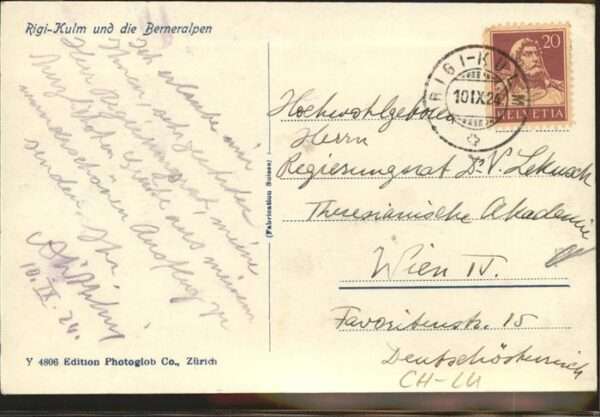 Rigi-Kulm und die Berneralpen
Ich erlaube mir
Ihnen, sehr geehrter
Herr Regierungsrat, meine
herzlichsten Grüsse aus meinem
wunderschönen Ausflug zu
senden. Ihr
10. IX. 24.
Y 4806 Edition Photoglob Co., Zürich
(Fabrication Suisse)
20
HELVETIA
RIGI-KULM
10 IX 24
Hochwohlgeboren
Herrn
Regierungsrat Dr. V.
Theresianische Akademie
Wien IV.
Favoritenstr. 15
Deutschösterreich
CH-LU